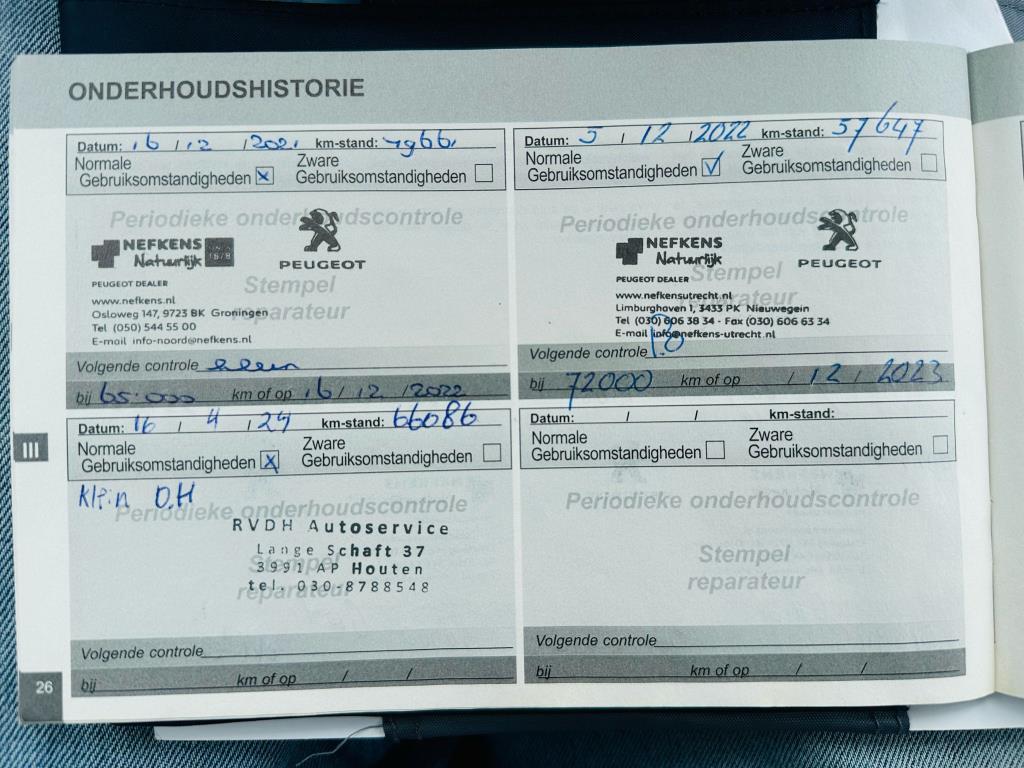 ONDERHOUDSHISTORIE
Datum: 16 / 12 / 2021 km-stand:
Normale Gebruiksomstandigheden x Zware Gebruiksomstandigheden
Periodieke onderhoudscontrole
NEFKENS
Natuurlijk
PEUGEOT
PEUGEOT DEALER
Stempel reparateur
www.nefkens.nl
Osloweg 147, 9723 BK Groningen
Tel (050) 544 55 00
E-mail info-noord@nefkens.nl
Volgende controle
bij 65.000 km of op 16 / 12 / 2022
Datum: 5 / 12 / 2022 km-stand: 57647
Normale Gebruiksomstandigheden Zware Gebruiksomstandigheden
Periodieke onderhoudscontrole
NEFKENS
Natuurlijk
PEUGEOT
PEUGEOT DEALER
Stempel
www.nefkensutrecht.nl
Limburghaven 1, 3433 PK Nieuwegein
Tel (030) 606 38 34 - Fax (030) 606 63 34
E-mail info@nefkens-utrecht.nl
Volgende controle
bij 72000 km of op / 12 / 2023
III
Datum: 16 / 4 / 24 km-stand: 66086
Normale Gebruiksomstandigheden x Zware Gebruiksomstandigheden
Klein O.H
Periodieke onderhoudscontrole
RVDH Autoservice
Lange Schaft 37
3991 AP Houten
tel. 030-8788548
Stempel
reparateur
Volgende controle
bij km of op / /
Datum: / / km-stand:
Normale Gebruiksomstandigheden Zware Gebruiksomstandigheden
Periodieke onderhoudscontrole
Stempel
reparateur
Volgende controle
bij km of op / /
26